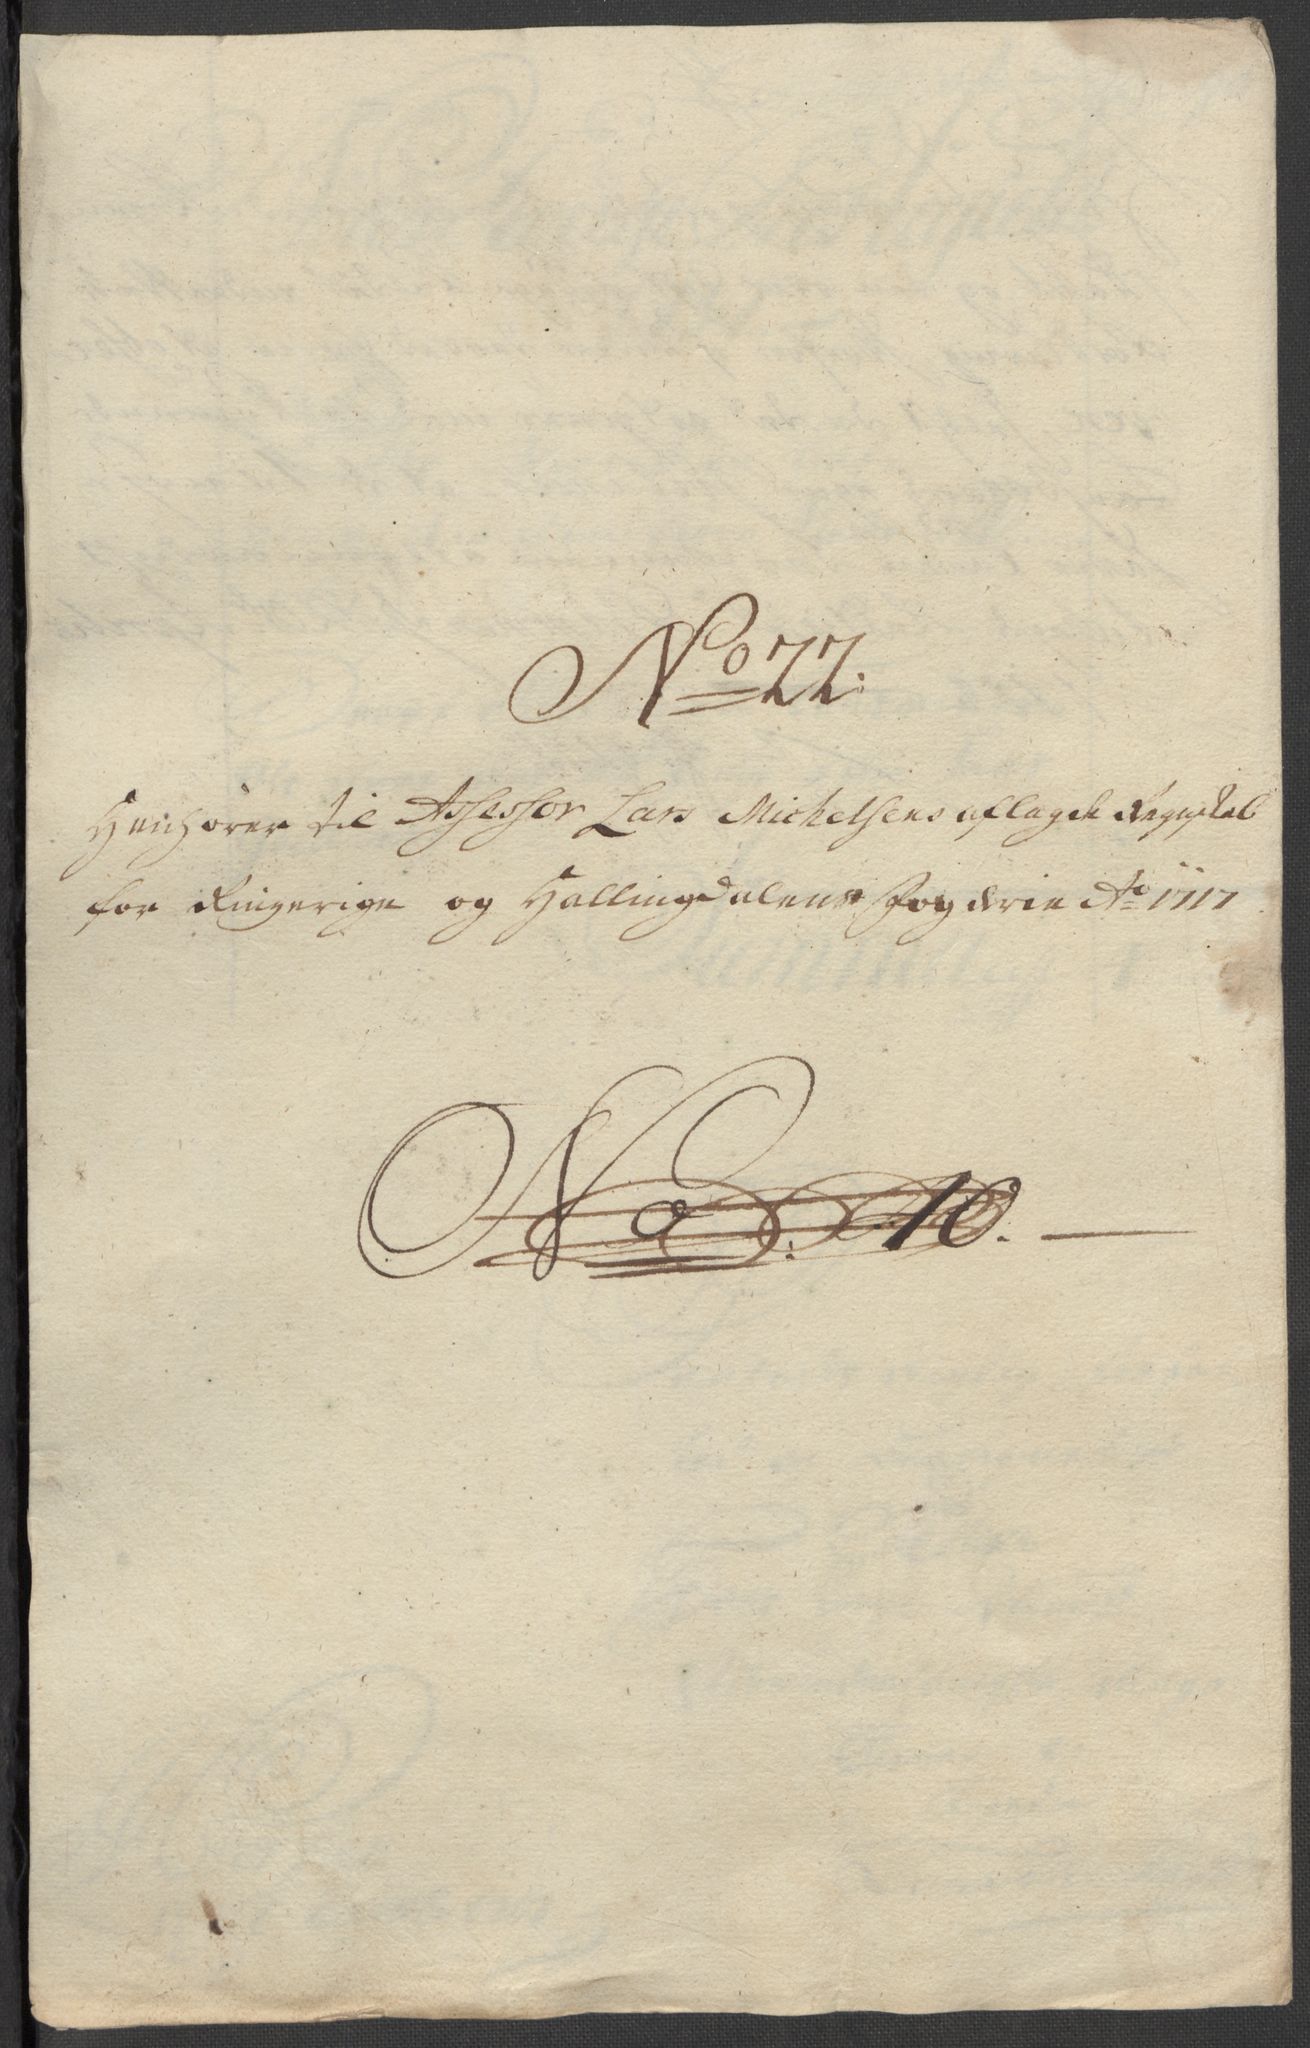 No 22.
Henhører til Assessor Lars Michelsens aflagde Regnskab
for Ringerige og Hallingdalens Fogderie Ao 1717
No. 10.